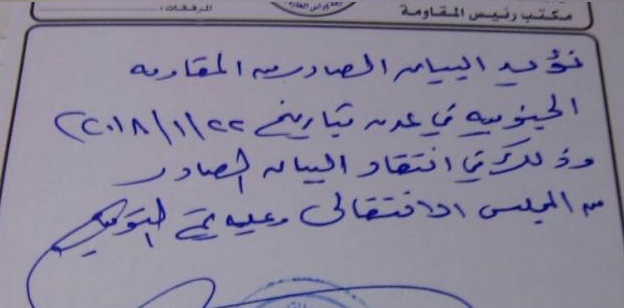 مكتب رئيس المقاومة
المرفقات :
نؤيد البيان الصادر من المقاومه
الجنوبيه في عدن بتاريخ ٢٠١٨/١/٢٢
وذلك في انتقاد البيان الصادر
من المجلس الانتقالي وعليه تم التوقيع